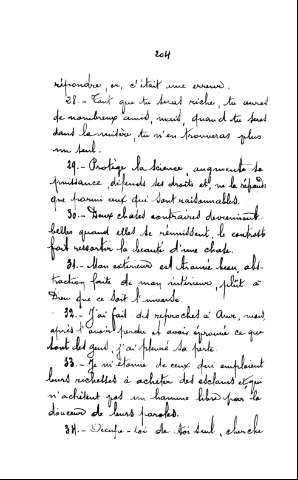 204
répondre, or, c'était une erreur.
28.- Tant que tu seras riche, tu auras
de nombreux amis, mais, quand tu seras
dans la misère, tu n'en trouveras plus
un seul.
29.- Protège la science, augmente sa
puissance, défends ses droits et, ne la répands
que parmi ceux qui sont raisonnables.
30.- Deux choses contraires deviennent
belles quand elles se réunissent, le contraste
fait ressortir la beauté d'une chose.
31.- Mon extérieur est trouvé beau, abs-
traction faite de mon intérieur, plût à
Dieu que ce soit l'inverse.
32.- J'ai fait des reproches à Amr, mais,
après l'avoir perdu et avoir éprouvé ce que
sont les gens, j'ai pleuré sa perte.
33.- Je m'étonne de ceux qui emploient
leurs richesses à acheter des esclaves et qui
n'achètent pas un homme libre par la
douceur de leurs paroles.
34.- Occupe-toi de toi seul, cherche